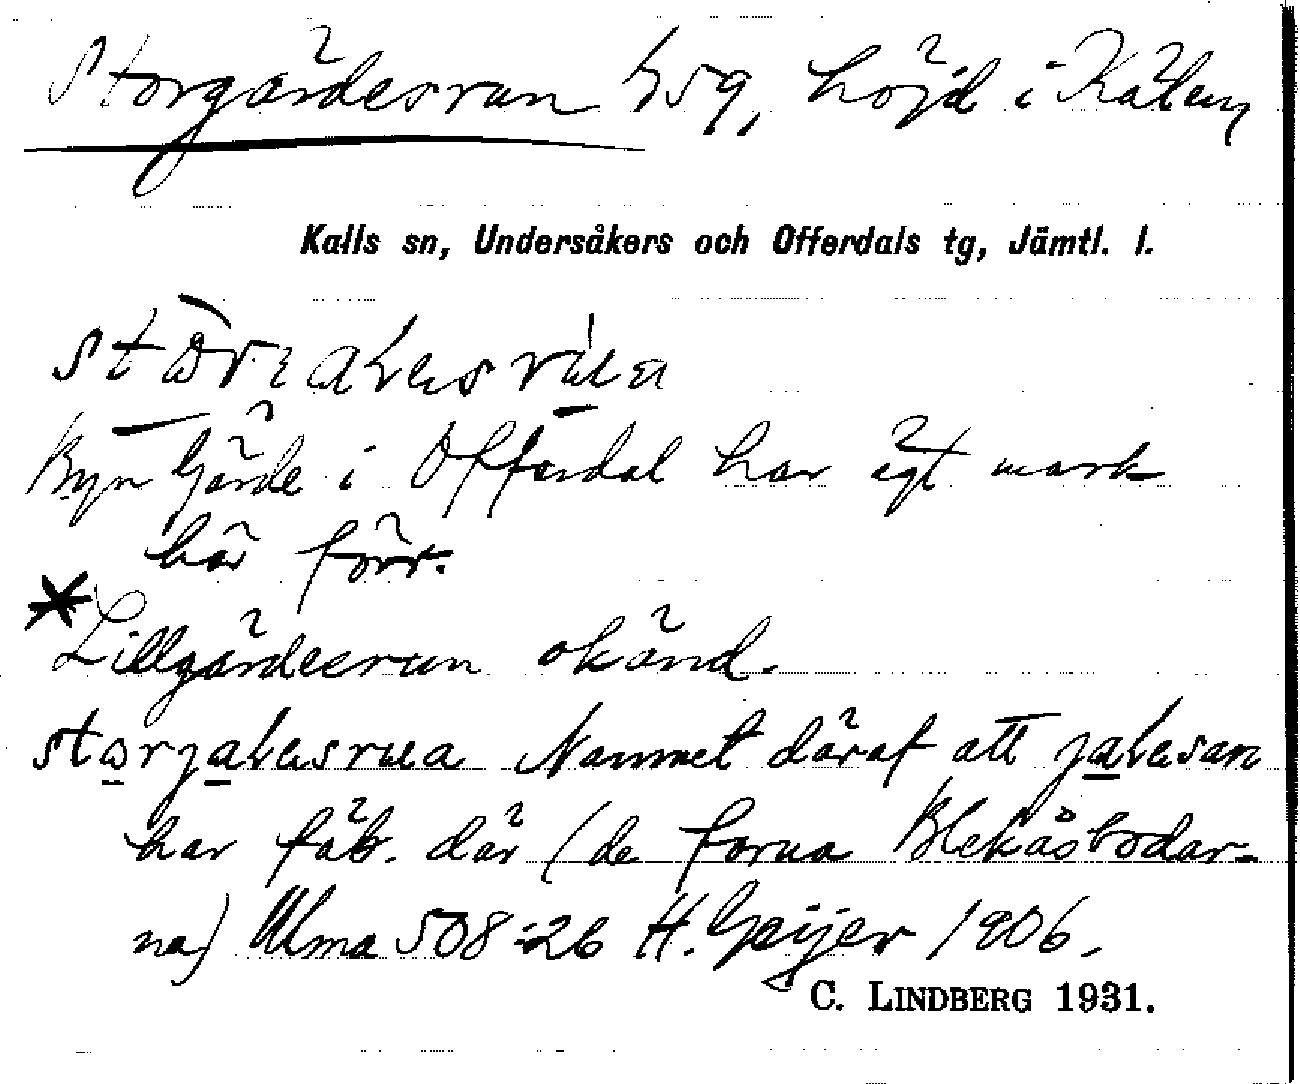 Storgärdesrun 459, höjd i Kälen
Kalls sn, Undersåkers och Offerdals tg, Jämtl. l.
Byn Gärde i Offerdal har ägt mark
här förr.
*Lillgärdesrun okänd.
storjalesrua Namnet däraf att jalesan
har fäb. där (de forna Blekåsbodar-
na) Ulma 508:26 H. Geijer 1906.
C. LINDBERG 1931.